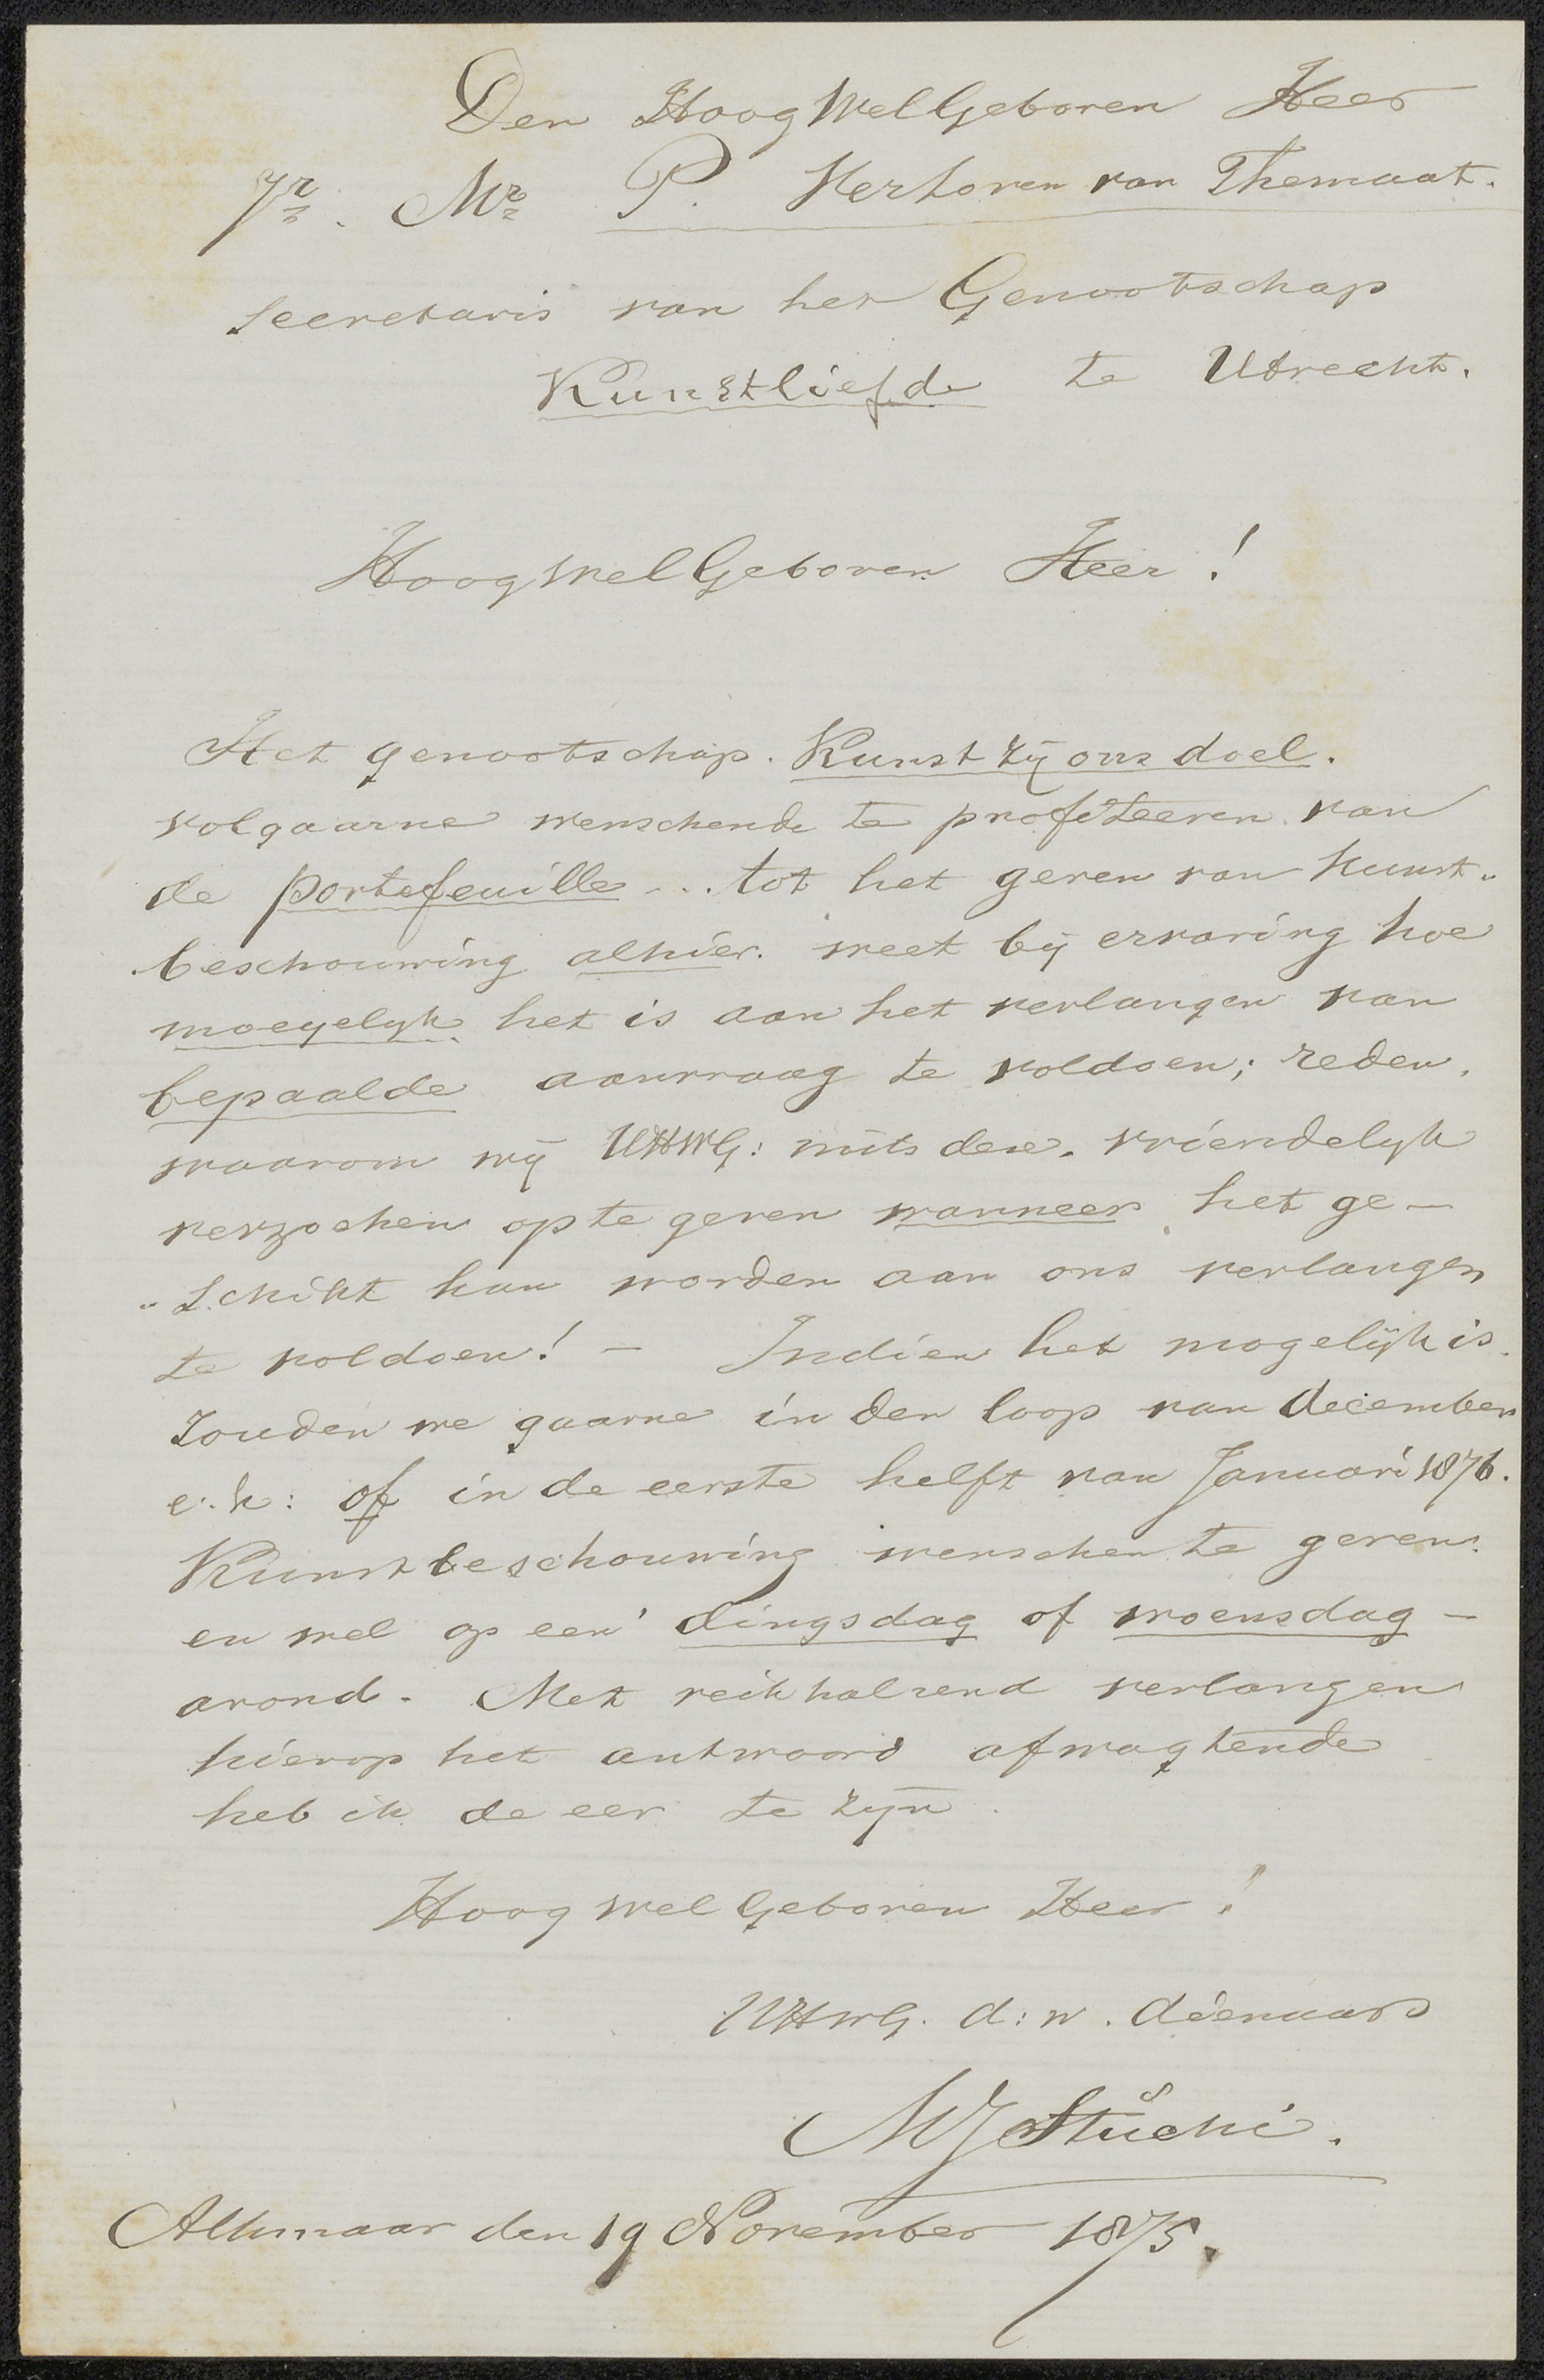 Den HoogWelGeboren Heer
Jr. Mr P. Verloren van Themaat.
Secretaris van het Genootschap
Kunstliefde te Utrecht.
HoogWelGeboren Heer!
Het genootschap. Kunst zij ons doel.
volgaarne wenschende te profiteeren van
de portefeuille ... tot het geven van kunst-
beschouwing alhier. weet bij ervaring hoe
moeyelyk het is aan het verlangen van
bepaalde aanvraag te voldoen; reden,
waarom wij UHWG: mits deze. vriendelyk
verzoeken op te geven wanneer het ge-
schikt kan worden aan ons verlangen
te voldoen! - Indien het mogelijk is.
zouden we gaarne in den loop van december
e.k: of in de eerste helft van Januari 1876.
Kunstbeschouwing wenschen te geven.
en wel op een' dingsdag of woensdag -
avond. Met reikhalzend verlangen
hierop het antwoord afwagtende
heb ik de eer te zyn.
Hoog wel Geboren Heer!
UHWG. d: w. dienaar
MJ Stücki.
Alkmaar den 19 November 1875.